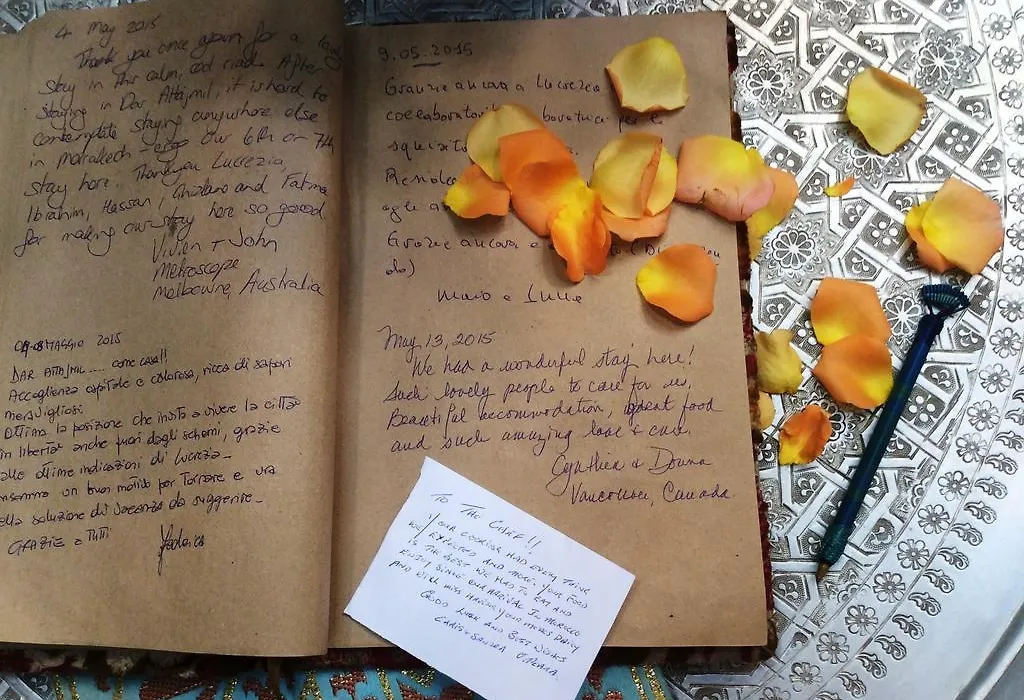 4 May 2015
Thank you once again for a
stay in this calm, After
staying in Dar Attajmil, it is hard to
contemplate staying anywhere else
in marrakech - our 6th or 7th
stay here. Thankyou Lucrezia
Ibrahim, Hassan, and Fatima
for making our stay here so good.
Vivien + John
Metroscope
Melbourne, Australia
MAGGIO 2015
DAR ATTAJMIL.... come casa!!
Accoglienza ospitale e calorosa, ricca di sapori
meravigliosi
Ottima la posizione che invita a vivere la città
in libertà anche fuori dagli schemi, grazie
alle ottime indicazioni di Lucrezia
insomma un buon motivo per Tornare e una
bella soluzione di vacanza da suggerire
GRAZIE a Tutti
Federica
9.05.2015
Grazie ancora a Lucrezia
per le
Grazie ancora e
do)
May 13, 2015
We had a wonderful stay here!
Such lovely people to care for us.
Beautiful accommodation, great food
and such amazing love & care.
Cynthia & Donna
Vancouver, Canada.
TO THE CHEF!!
YOUR COOKING HAD EVERY THING
WE EXPECTED AND MORE. YOUR FOOD
IS THE BEST WE HAD TO EAT AND
ENJOY SINCE OUR ARRIVAL IN MOROCCO
AND WILL MISS HAVING YOUR DAILY
GOOD LUCK AND BEST WISHES
CHRIS + SANDRA O'MEARA